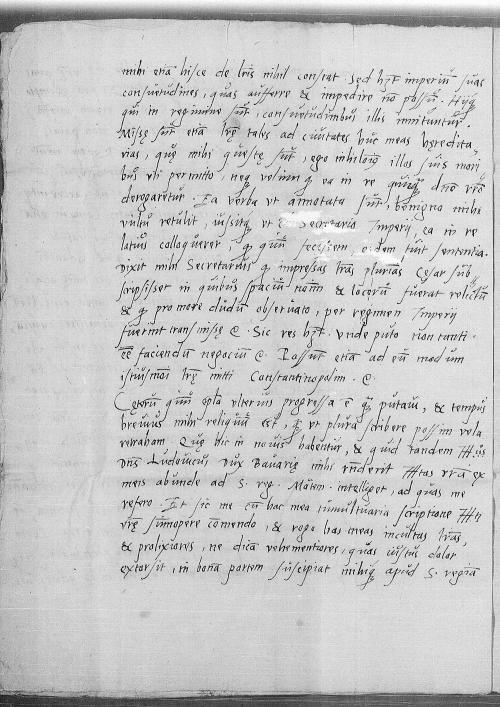 mihi etiã hisce de lr̃is nihil constat. Sed hz̃t imperiũ suas
consuetudines, quas aufferre & impedire nõ possũ. Hijq̃
qui in regimine sũt, consuetudinibus illis innituntur.
Missę sũt etiã lr̃ę tales ad civitates huc meas hęredita,
rias, quę mihi questę sũt, ego nihilomĩ illos suis mori
bus uti permitto, neq̃ velim q̃ ea in re quicq̃ dño vr̃o
derogaretur. Ea verba ut annotata sũt, benigno mihi
vultu retulit, iussitq̃ ut cũ Secretario Imperij, ea in re
latius colloquerer, q̃ qũm fecissem, eadem fuit sententia.
Dixit mihi Secretarius q̃ impressas lr̃as plurimas Cęsar sub,
scripsisset in quibus spaciũ noĩm & locorũ fuerat relictũ
& q̃ pro more dudũ observato, per regimen Imperij
fuerint transmissę &c. Sic res hz̃t. Unde puto non tanti
eẽ faciendũ negociũ &c. Possũt etiã ad eũ modum
istiusmõi lr̃ę mitti Constantinopolim. &c.
Cęterũ qũm opĩo ulterius progressa ẽ q̃ putavi, & tempus
brevius mihi reliquũ est, q̃ ut plura scribere possim vela
retraham. Quę hic in novis habentur, & quid tandem Ill.mus
Dñs Ludovicus Dux Bavarię mihi rñderit Illtas vr̃a ex
meis abunde ad S. reg. Mãtem intelliget, ad quas me
refero. Et sic me cũ hac mea tumultuaria scriptione Illr̃i
vr̃ę sũmopere comendo, & rogo has meas incultas lr̃as,
& prolixiores, ne dicã vehementiores, quas iustus dolor
extorsit, in bonã partem suscipiat mihiq̃ apud S. regiã